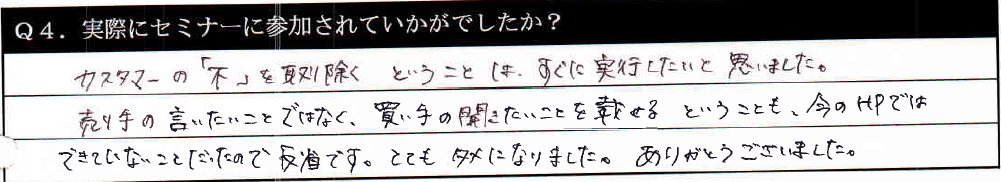 Q4．実際にセミナーに参加されていかがでしたか？
カスタマーの「不」を取り除く ということは、すぐに実行したいと思いました。
売り手の言いたいことではなく、買い手の聞きたいことを載せる ということも、今のHPでは
できていないことだったので反省です。とてもタメになりました。 ありがとうございました。